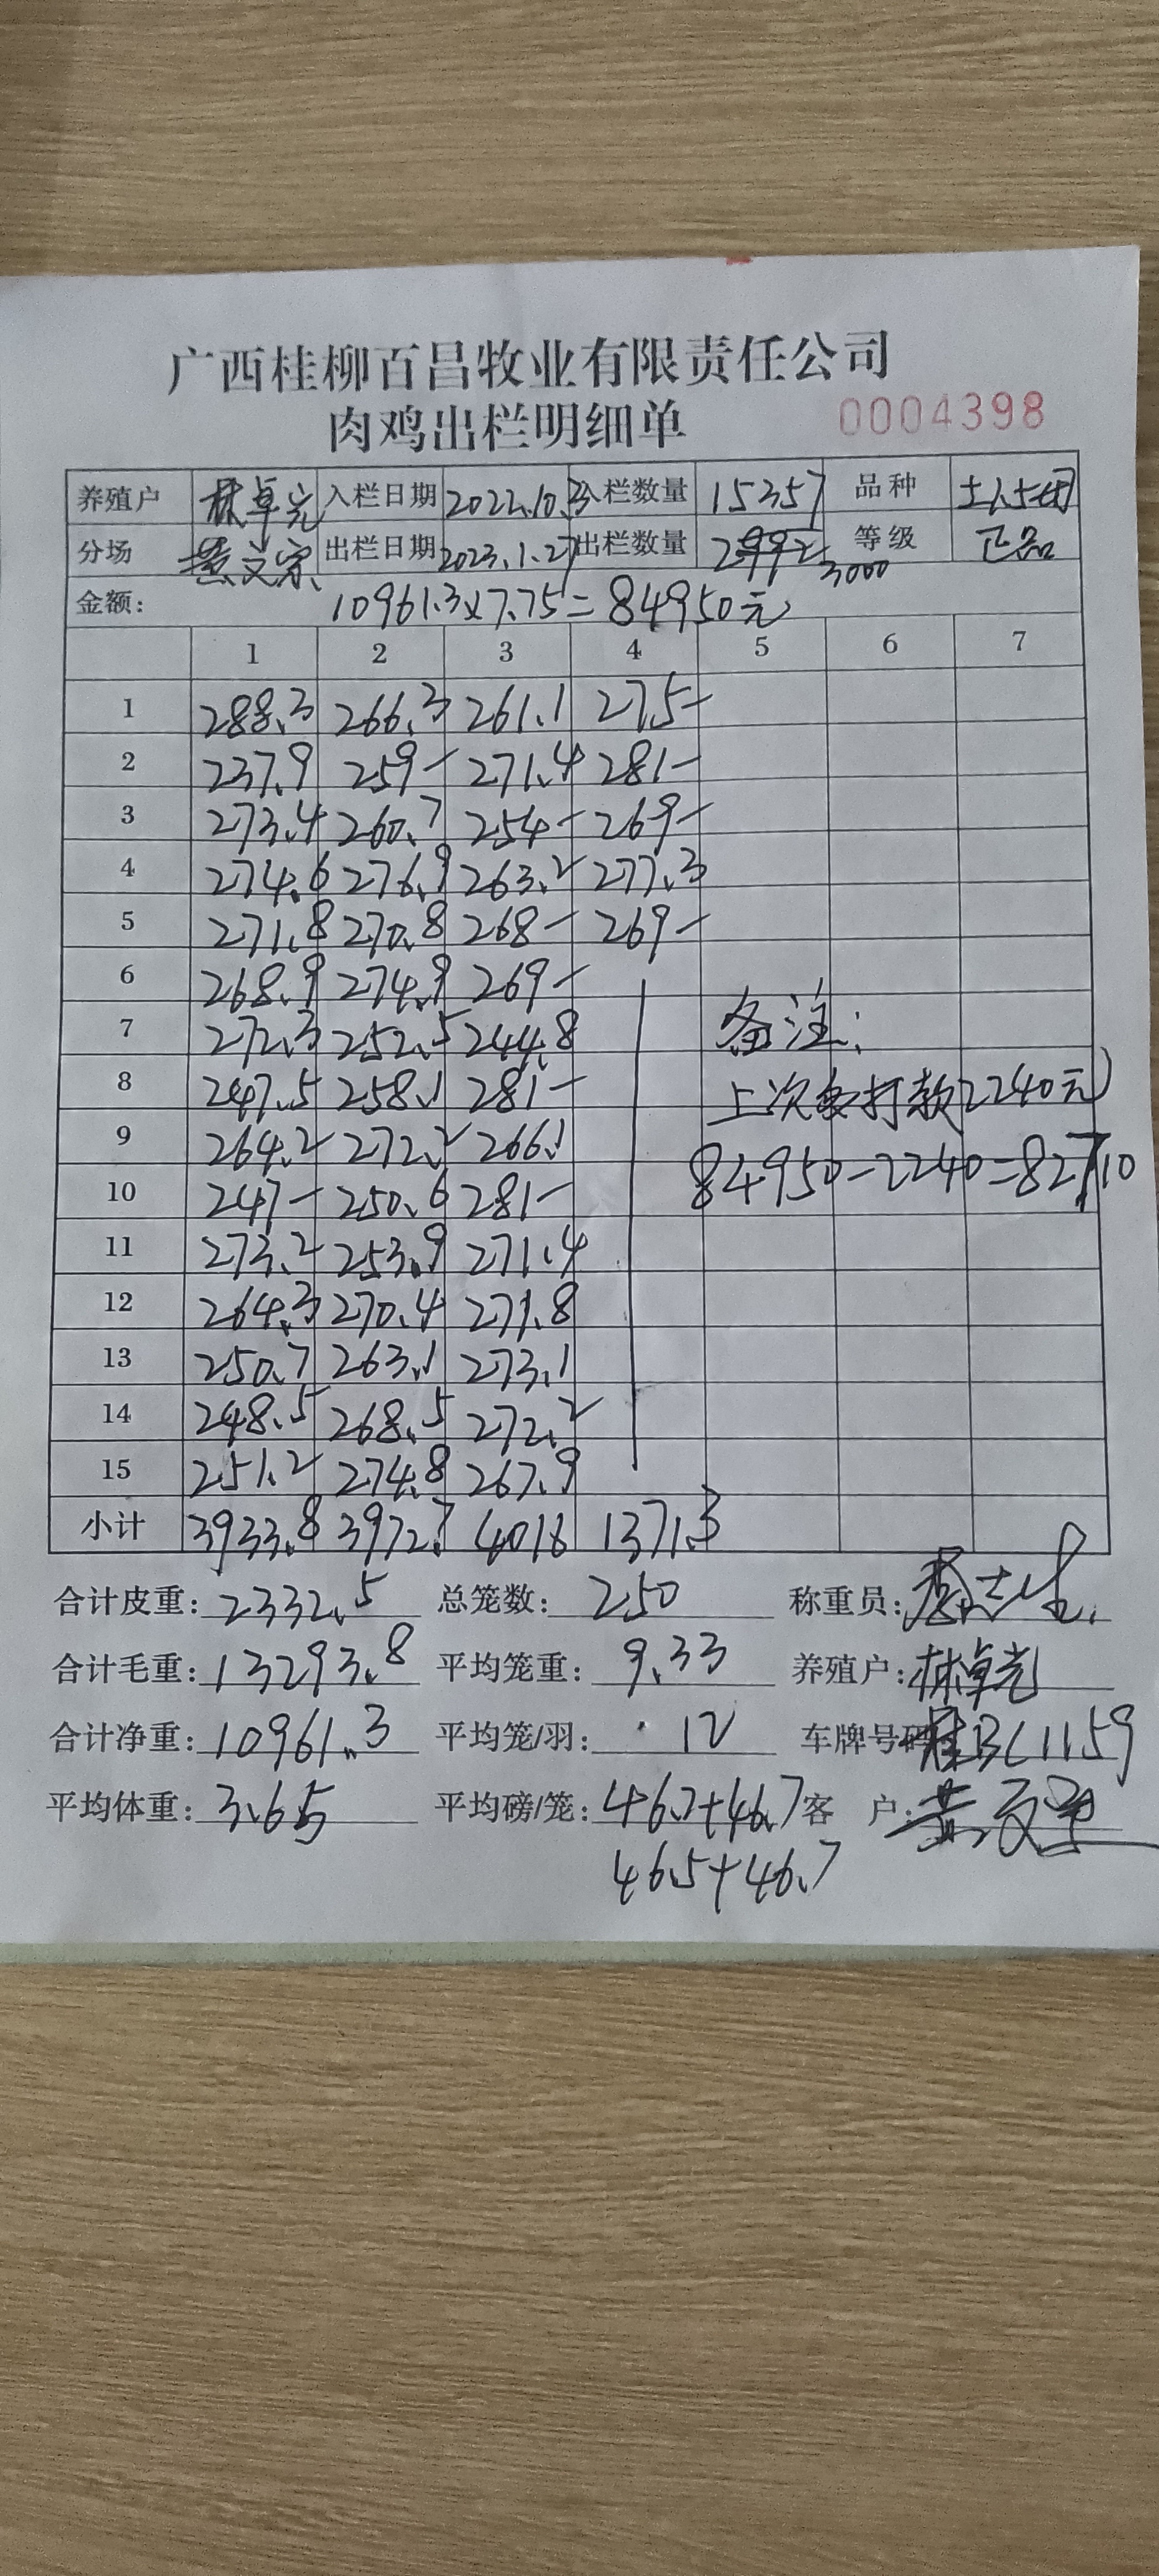 广西桂柳百昌牧业有限责任公司
肉鸡出栏明细单 0004398
养殖户 林卓光 入栏日期 2022.10.23 入栏数量 15357 品种
分场 黄文 出栏日期 2023.1.27 出栏数量 2992 3000 等级 正品
金额: 10961.3x7.75=84950元
1 2 3 4 5 6 7
1 288.3 266.3 261.1 275-
2 237.9 259- 271.4 281-
3 273.4 260.7 254- 269-
4 274.6 276.9 263.2 277.3
5 271.8 270.8 268- 269-
6 268.9 274.9 269-
7 272.3 252.5 244.8 备注:
8 247.5 258.1 281- 上次打款2240元
9 264.2 272.2 266.1 84950-2240=82710
10 247- 250.6 281-
11 273.2 253.9 271.4
12 264.3 270.4 271.8
13 250.7 263.1 273.1
14 248.5 268.5 272.2
15 251.2 274.8 267.9
小计 3933.8 3972.7 4016 1371.3
合计皮重: 2332.5 总笼数: 250 称重员:
合计毛重: 13293.8 平均笼重: 9.33 养殖户: 林卓光
合计净重: 10961.3 平均笼/羽: 12 车牌号码 桂BC1159
平均体重: 3.65 平均磅/笼: 46.7+46.7 客 户: 黄文
46.5+46.7